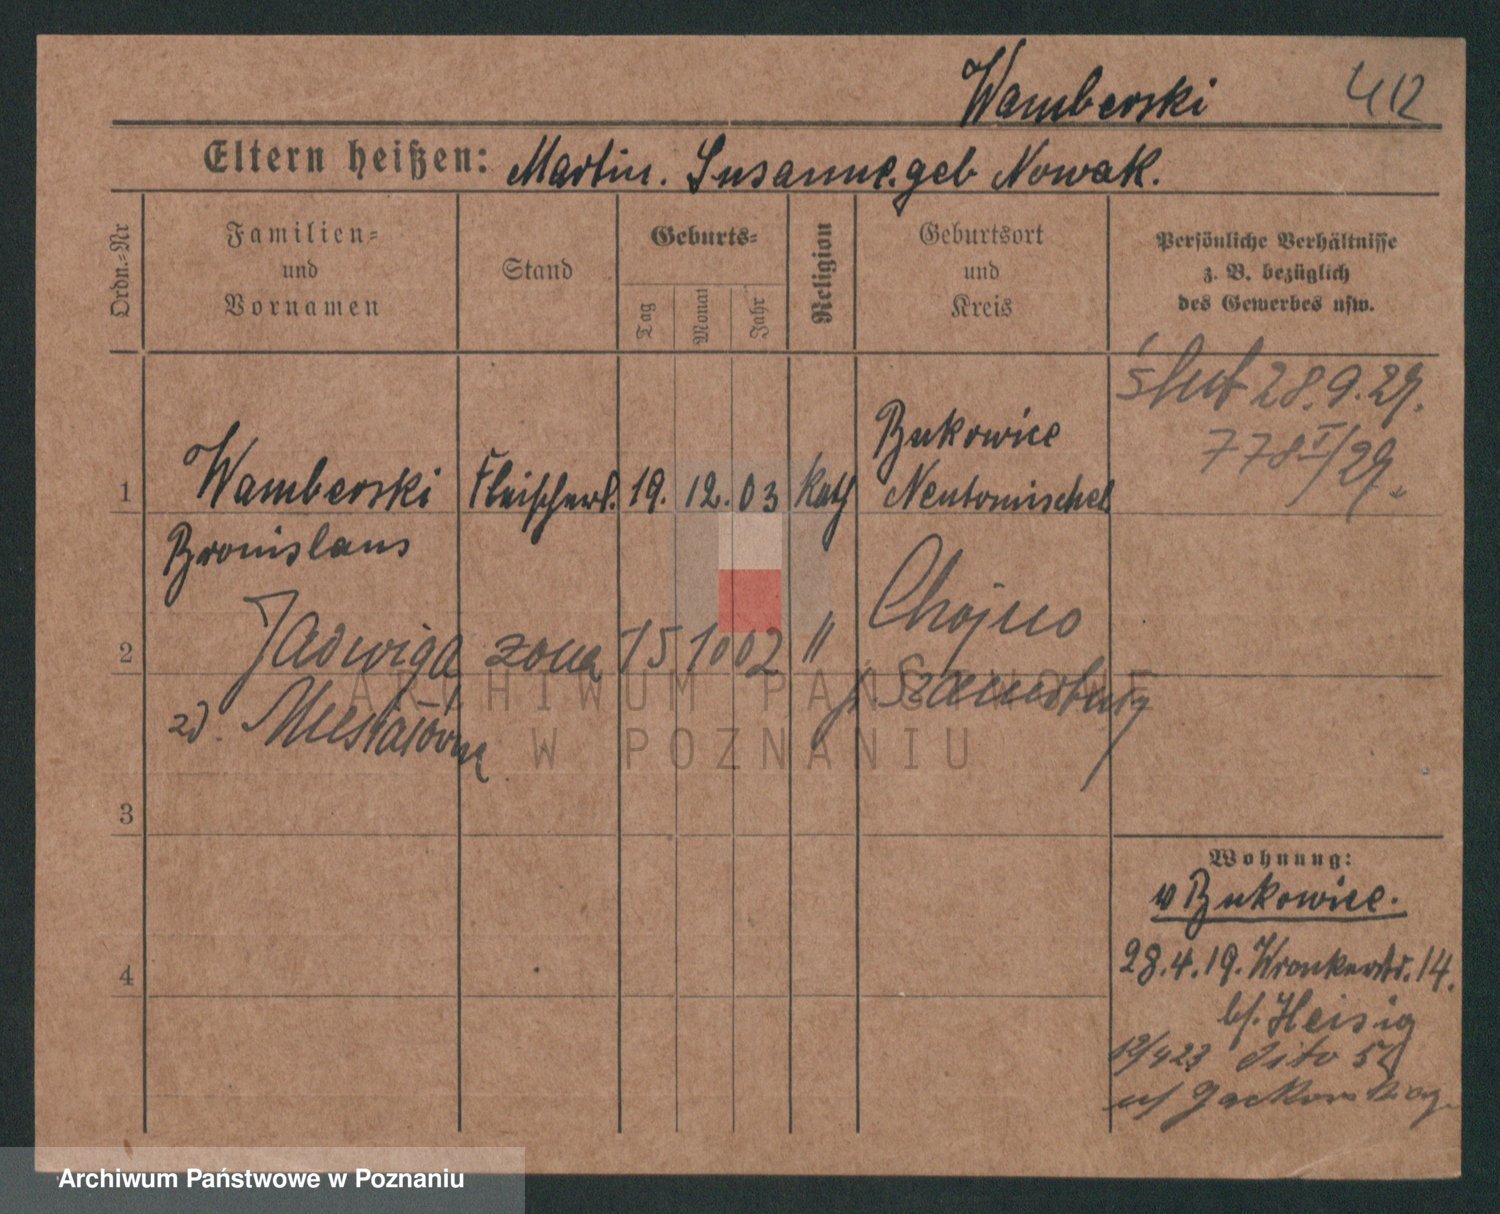 Wamberski 412
Eltern heißen: Martin. Susanne. geb Nowak.
Ordn.-Nr
Familien-
und
Vornamen
Stand
Geburts-
Tag Monat Jahr
Religion
Geburtsort
und
Kreis
Persönliche Verhältnisse
z. B. bezüglich
des Gewerbes usw.
ślub 28.9.29.
778 I/29.
1 Wamberski Fleischerl. 19. 12. 03 kath Bukowice
Neutomischel
Bronislaus
2 Jadwiga żona 15 10 02 " Chojno
p. Szamotuły
zd.
3
4
Wohnung:
v Bukowice.
28.4.19. Wronkerstr. 14.
bf. Heisig
12/4 23 dito
ARCHIWUM PAŃSTWOWE
W POZNANIU
Archiwum Państwowe w Poznaniu